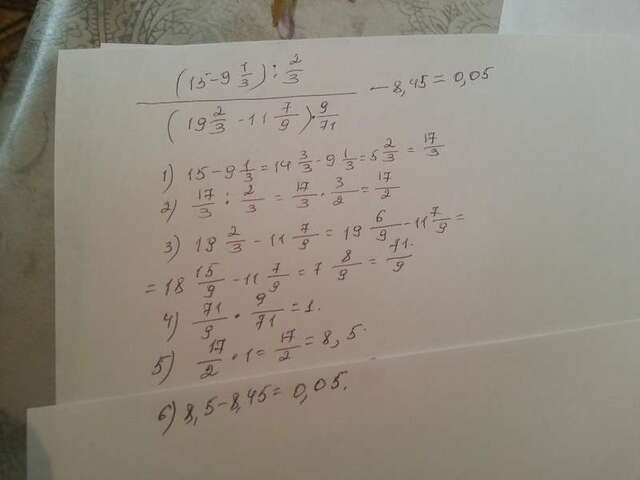 (15-9 1/3) : 2/3
(19 2/3 - 11 7/9) · 9/71 - 8,45 = 0,05
1) 15-9 1/3 = 14 3/3 - 9 1/3 = 5 2/3 = 17/3
2) 17/3 : 2/3 = 17/3 · 3/2 = 17/2
3) 19 2/3 - 11 7/9 = 19 6/9 - 11 7/9 =
= 18 15/9 - 11 7/9 = 7 8/9 = 71/9
4) 71/9 · 9/71 = 1.
5) 17/2 · 1 = 17/2 = 8,5.
6) 8,5-8,45 = 0,05.